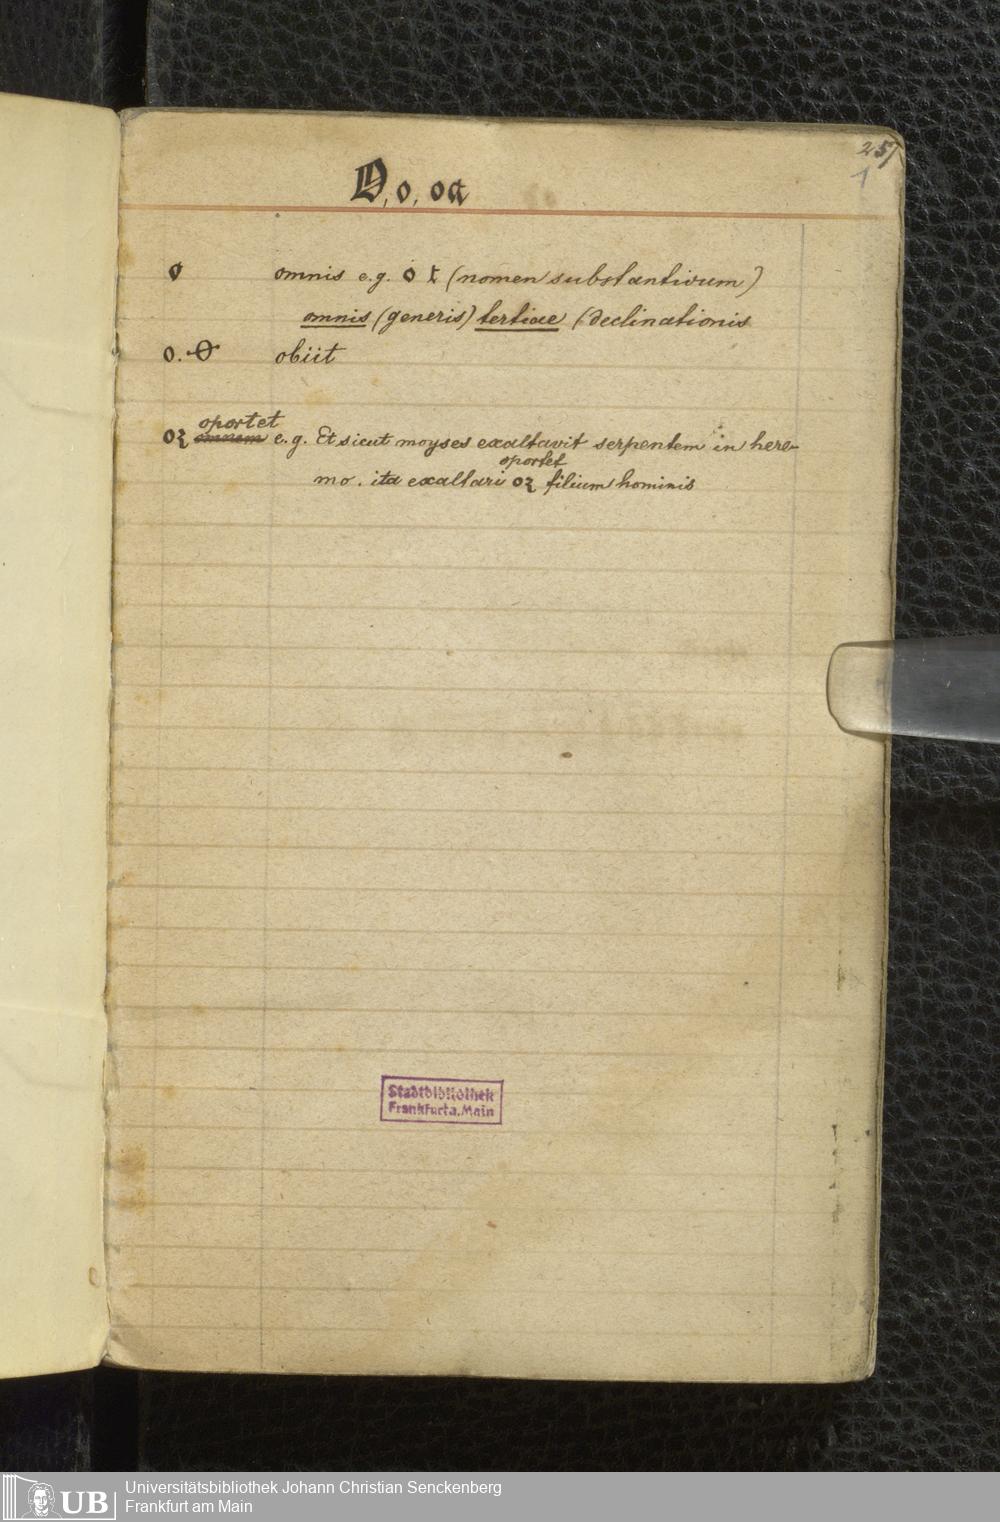 257
1
O, o, oa
o omnis e.g. o t (nomen substantivum)
omnis (generis) tertiae (declinationis
o. obiit
oportet
oꝫ omnem e.g. Et sicut moyses exaltavit serpentem in here-
oportet
mo. ita exaltari oꝫ filium hominis
Stadtbibliothek
Frankfurt a. Main
UB
Universitätsbibliothek Johann Christian Senckenberg
Frankfurt am Main